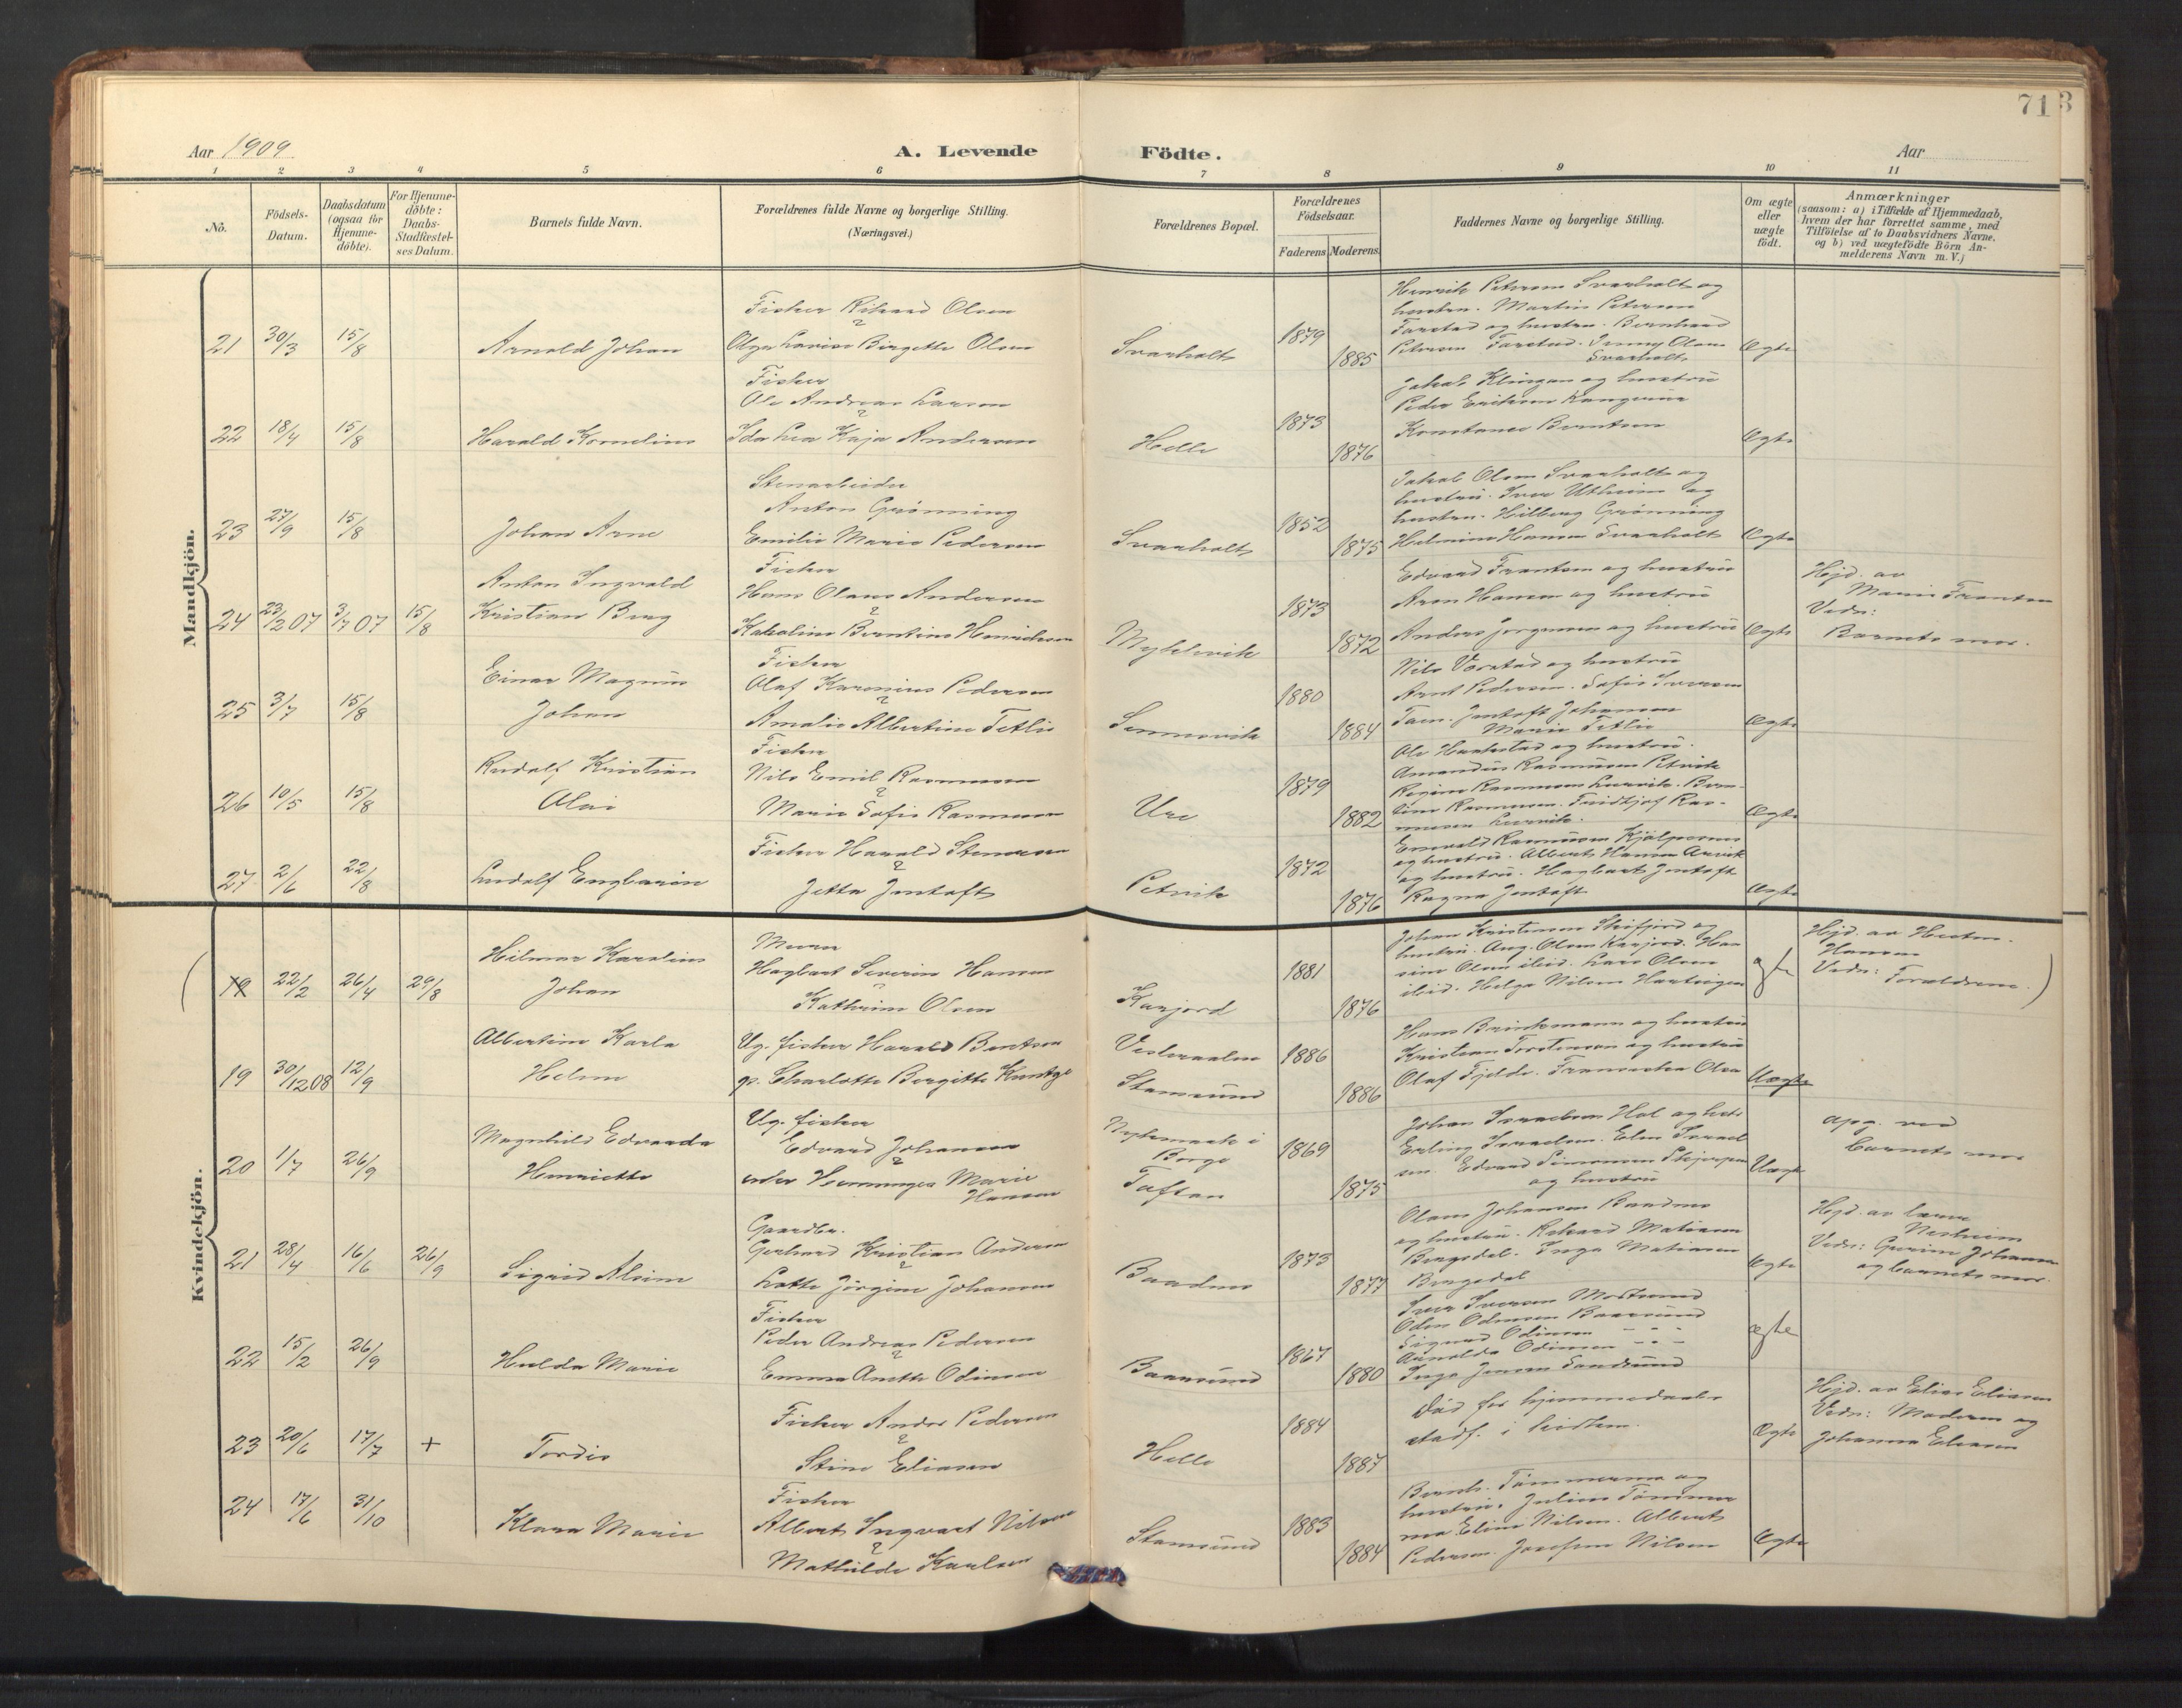 71 3
Aar 1909
A. Levende Födte.
Aar
1 2 3 4 5 6 7 8 9 10 11
No.
Födsels-Datum.
Daabsdatum (ogsaa for Hjemme-döbte).
For Hjemme-döbte: Daabs-Stadfæstel-ses Datum.
Barnets fulde Navn.
Forældrenes fulde Navne og borgerlige Stilling.
(Næringsvei.)
Forældrenes Bopæl.
Forældrenes Födselsaar.
Faderens Moderens
Faddernes Navne og borgerlige Stilling.
Om ægte eller uægte födt.
Anmærkninger
(saasom: a) i Tilfælde af Hjemmedaab,
hvem der har forrettet samme, med
Tilföielse af to Daabsvidners Navne,
og b) ved uægtefödte Börn An-
melderens Navn m. V.)
Mandkjön.
21 30/3 15/8 Arnold Johan
Fisker Rikard Olsen
Olga Lovise Birgitte Olsen
Svarholt 1879 1885
Henrik Petersen Svarholt og
hustru. Martin Petersen
Farstad og hustru. Bernhard
Petersen Farstad. Olsen
Svarholt
Ægte
22 18/4 15/8 Harald Kornelius
Fisker
Ole Andreas Larsen
Ida Lea Kaja Andersen
Helle 1873 1876
Jakob Klingan og hustru
Peder Eriksen
Konstance Berntsen
Ægte
23 27/9 15/8 Johan Arne
Stenarbeider
Anton Grønning
Emilie Marie Pedersen
Svarholt 1852 1875
Jakob Olsen Svarholt og
hustru. Iver Utheim og
hustru. Hilberg Grønning
Helmine Hansen Svarholt
Ægte
24 23/2 07 3/7 07 15/8
Anton Ingvald
Kristian Berg
Fisker
Hans Olaus Andersen
Kakoline Berntine Henriksen
Myklevik 1873 1872
Edvard Frantsen og hustru
Aron Hansen og hustru
Anders Jørgensen og hustru
Ægte
Hjd. av
Marie Frantsen
Vidn:
Barnets mor.
25 3/7 15/8
Einar Magnus
Johan
Fisker
Olaf Karenius Pedersen
Amalie Albertine Tetlie
Sennesvik 1880 1884
Nils Vorstad og hustru
Arnt Pedersen. Sofie Iversen
Jentoft Johansen
Marie Tetlie
Ægte
26 10/5 15/8
Rudolf Kristian
Olai
Fisker
Nils Emil Rasmussen
Marie Sofie Rasmussen
Ure 1879 1882
Ole Haakstad og hustru.
Amandus Rasmussen Petvik
Regine Rasmussen. Bern-
tine Rasmussen. Fridtjof Ras-
mussen
Ægte
27 2/6 22/8 Ludolf Engbarin
Fisker Harald Stensen
Jetta Jentoft
Petvik 1872 1876
Rasmussen
og hustru. Albert Hansen
og hustru. Hagbart Jentoft
Ragna Jentoft
Ægte
Kvindekjön.
( 19 22/2 26/4 29/8
Hilmar Karolius
Johan
Murer
Hagbart Severin Hansen
Kathrine Olsen
Karjord 1881 1876
Johan Kristensen Skifjord og
hustru. Aug. Olsen Karjord. Han-
sine Olsen ibid. Lars Olsen
ibid. Helga Nilsen
ægte
Hjd. av
Hansen
Vidn:
Forældrene )
19 30/12 08 12/9
Albertine Karla
Helene
Ug. fisker Harald Bentsen
p. Charlotte Bergitte Kuntze
Vesteraalen
Stamsund 1886 1886
Hans Brinkmann og hustru
Kristian Torstensen og hustru
Olaf Fjelde. Fransiska Olsen
Uægte
20 1/7 26/9
Magnhild Edvarda
Henriette
Ug. fisker
Edvard Johansen
Henninga Marie
Hansen
i
Borge
Taftan 1869 1875
Johan Israelsen Hol og
Erling Israelsen. Elen Israel-
sen Edvard Simonsen
og hustru
Uægte
opg. ved
barnets mor
21 28/4 16/6 26/9 Sigrid Alvine
Gaardbr.
Gerhard Kristian Andersen
Lotte Jørgine Johansen
Baadnes 1873 1877
Olaus Johansen Baadnes
og hustru. Rikard Matiasen
Bergsdal. Inga Matiasen
Bergsdal
Ægte
Hjd. av lærer
Nesheim
Vidn: Gurine Johansen
og barnets mor.
22 15/2 26/9 Hulda Marie
Fisker
Peder Andreas Pedersen
Emma Anette Odinsen
Baarsund 1867 1880
Iver Iversen Mortsund
Oden Odensen Baarsund
Sigurd Odinsen
Arnolda Odinsen
Inga Jensen Sandsund
ægte
23 20/6 17/7 + Tordis
Fisker Andor Pedersen
Stine Eliasen
Helle 1884 1887
Død før hjemmedaabs
stadf. i kirken.
Ægte
Hjd. av Elias Eliasen
Vidn: Moderen og
Johanna Eliasen
24 17/6 31/10 Klara Marie
Fisker
Albert Ingvart Nilsen
Mathilde Karlsen
Stamsund 1883 1884
Bernh. Tømmernes og
hustru. Julius Tømmer-
nes Eline Nilsen. Albert
Pedersen. Josefine Nilsen
Ægte